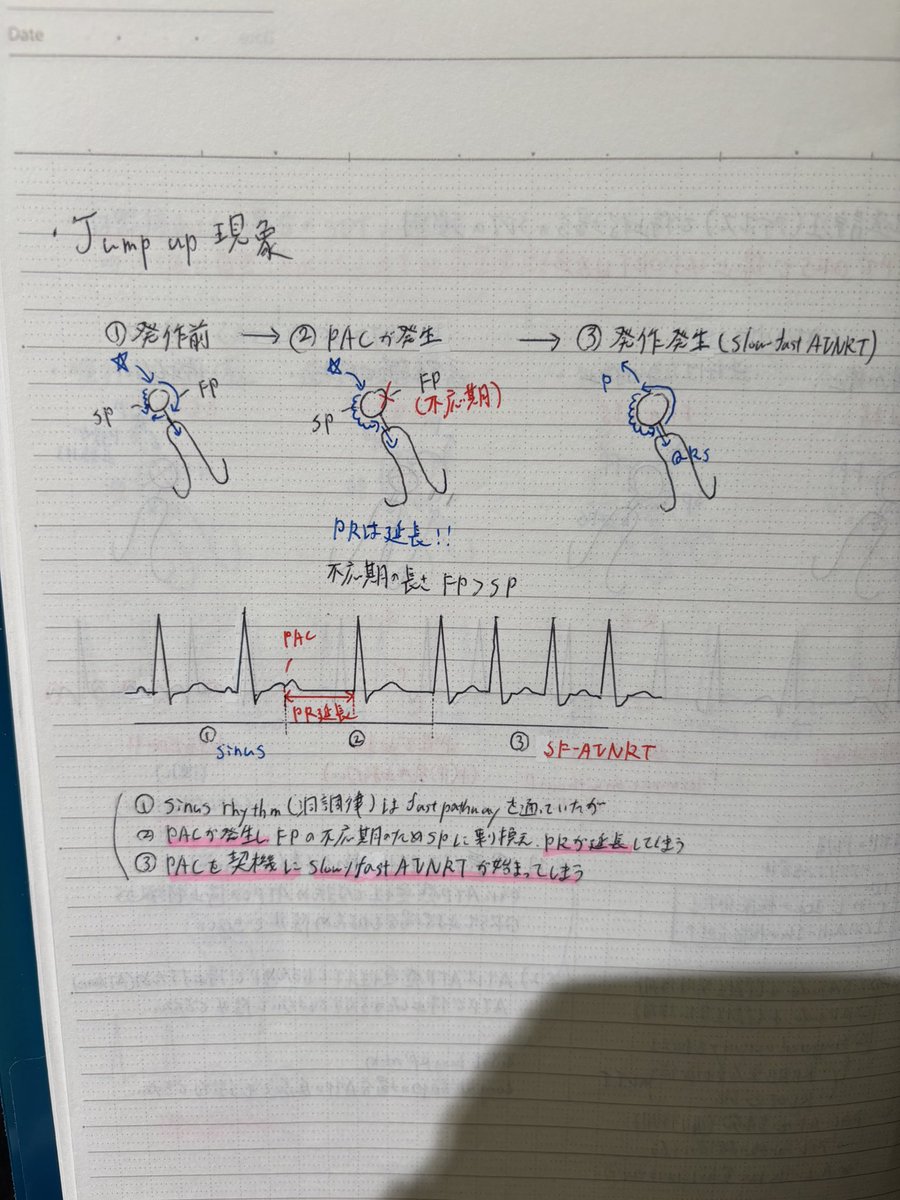 Date
・Jump up 現象
① 発作前 → ② PACが発生 → ③ 発作発生 (slow-fast AVNRT)
FP
SP
FP
(不応期)
SP
P
QRS
PRは延長!!
不応期の長さ FP>SP
PAC
PR延長
① ② ③
sinus SF-AVNRT
① sinus rhythm (洞調律) は fast pathway を通っていたが
② PACが発生し FPの不応期のためSPに乗り換え、PRが延長してしまう
③ PACを契機に slow/fast AVNRTが始まってしまう